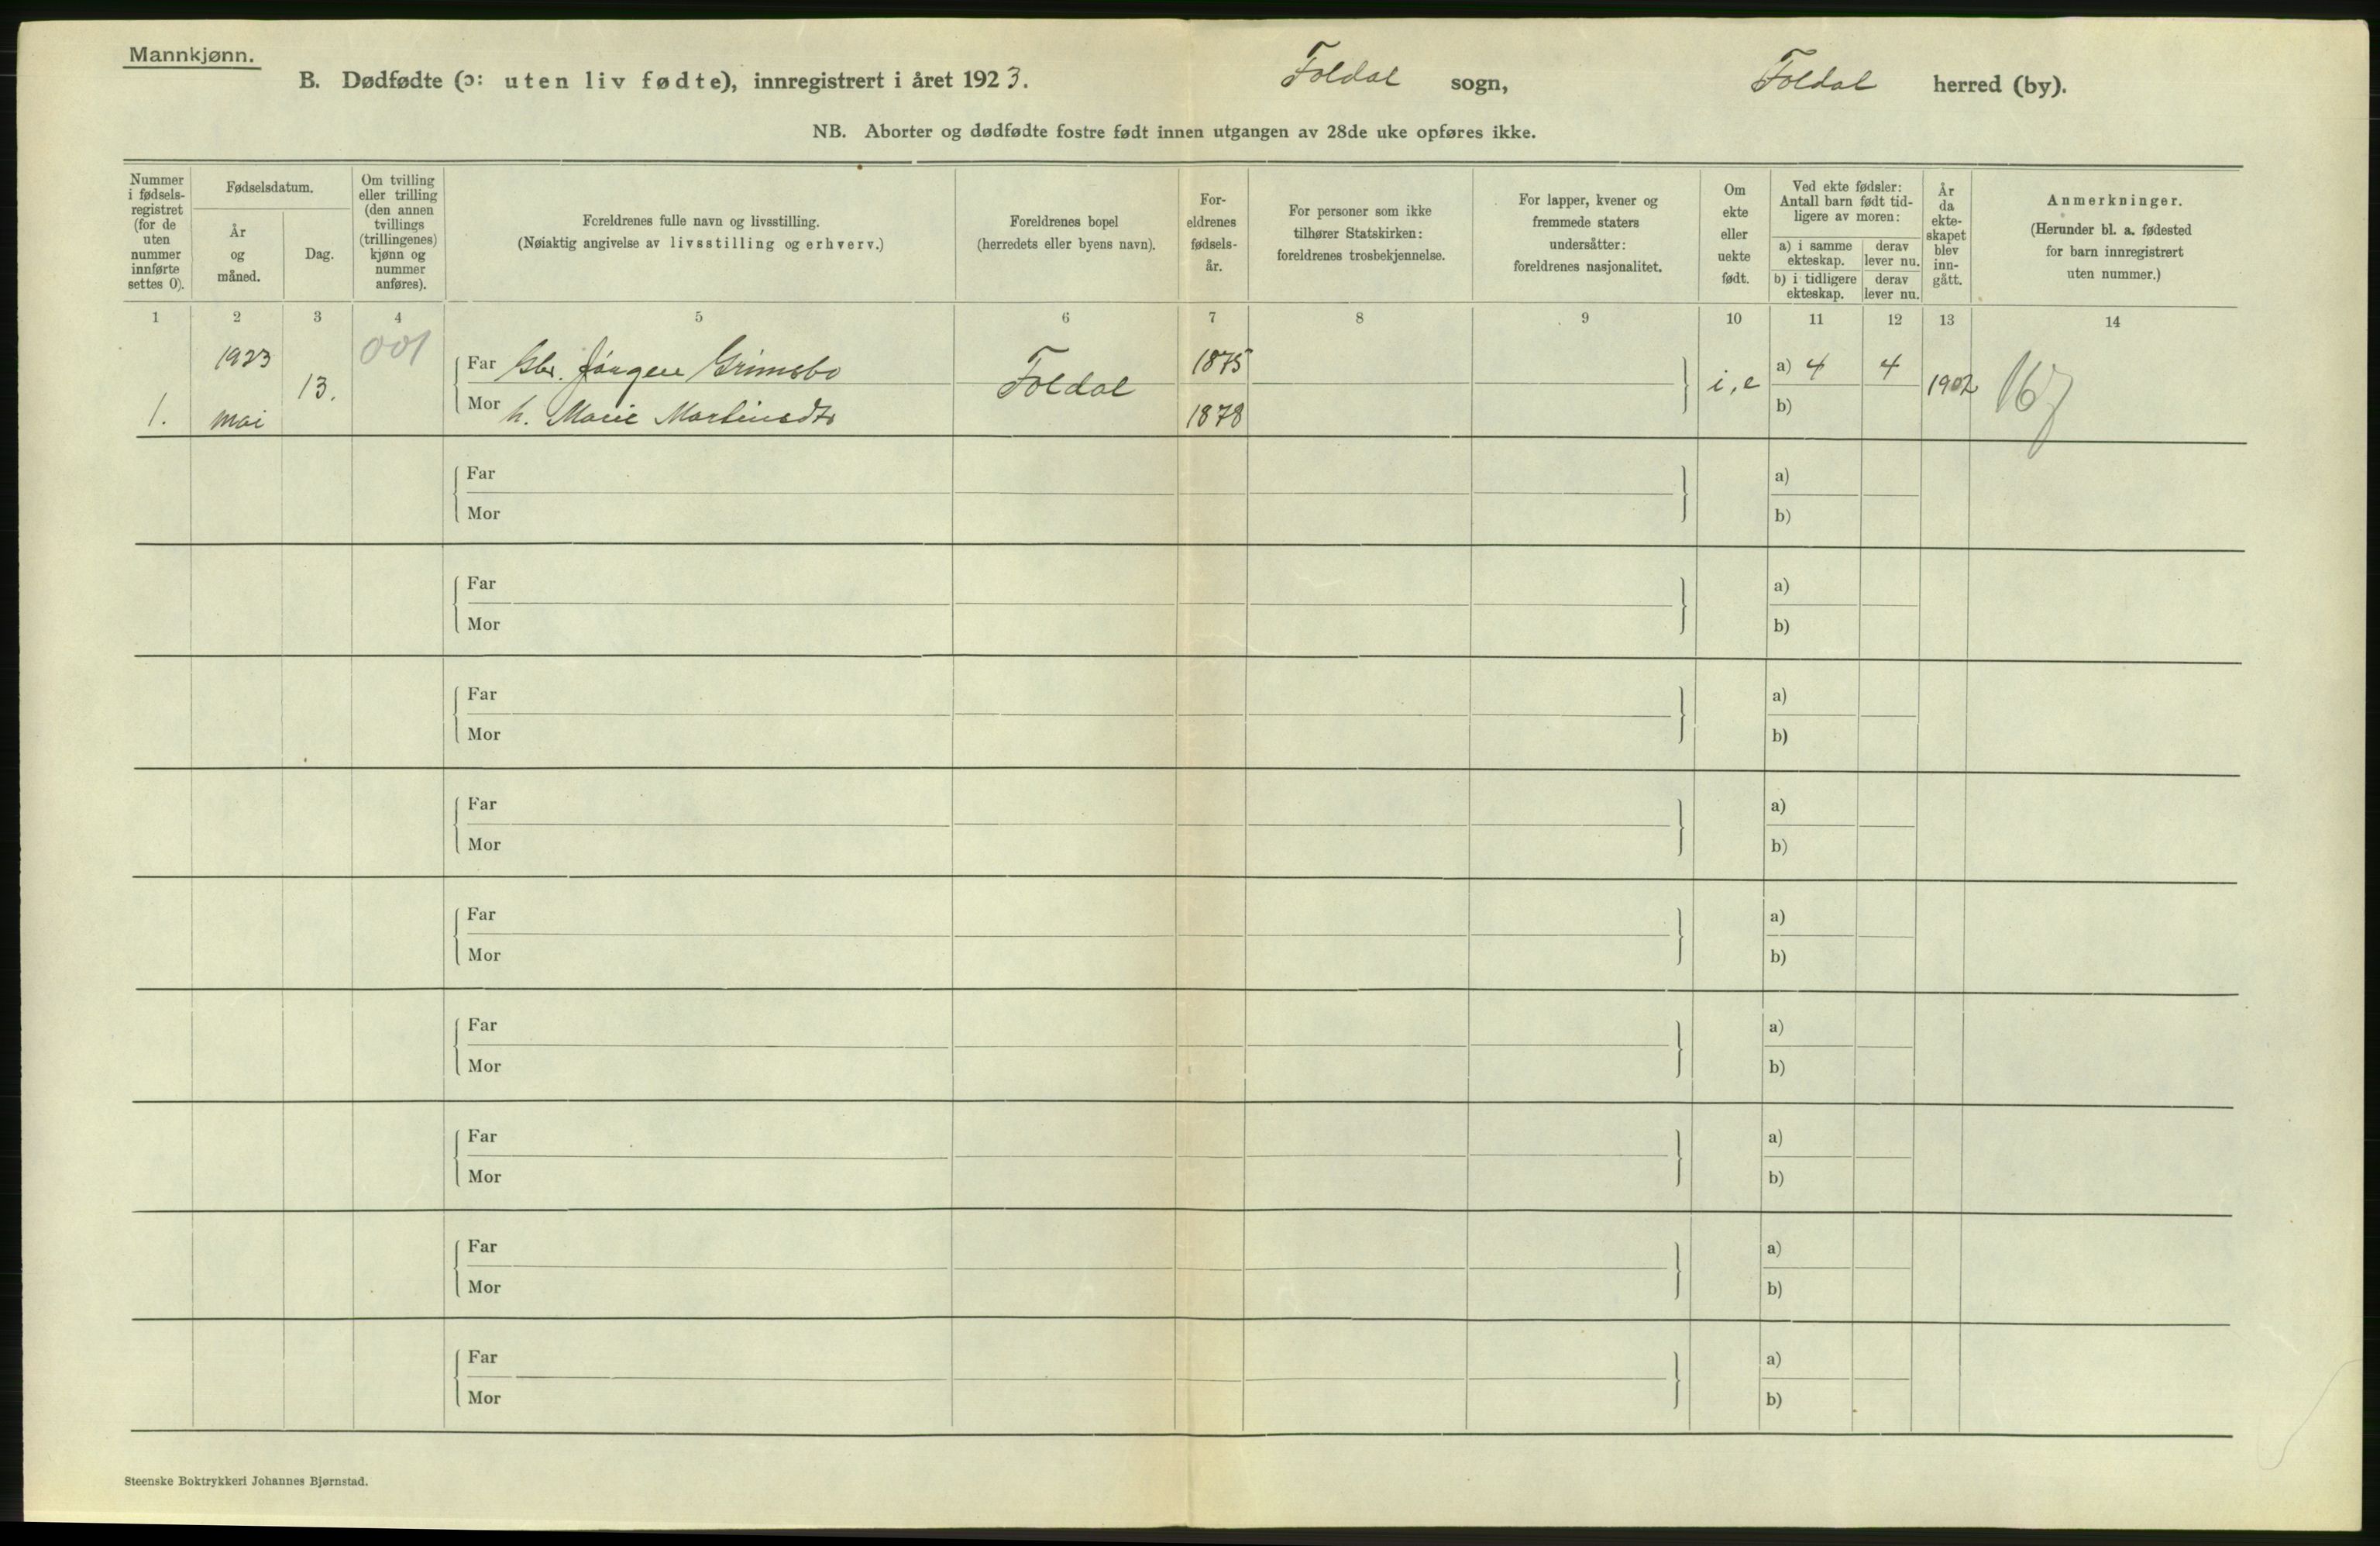 Mannkjønn.
B. Dødfødte (ɔ: uten liv fødte), innregistrert i året 1923. Foldal sogn, Foldal herred (by).
NB. Aborter og dødfødte fostre født innen utgangen av 28de uke opføres ikke.
Nummer
i fødsels-
registret
(for de
uten
nummer
innførte
settes 0).
Fødselsdatum.
År
og
måned.
Dag.
Om tvilling
eller trilling
(den annen
tvillings
(trillingenes)
kjønn og
nummer
anføres).
Foreldrenes fulle navn og livsstilling.
(Nøiaktig angivelse av livsstilling og erhverv.)
Foreldrenes bopel
(herredets eller byens navn).
For-
eldrenes
fødsels-
år.
For personer som ikke
tilhører Statskirken:
foreldrenes trosbekjennelse.
For lapper, kvener og
fremmede staters
undersåtter:
foreldrenes nasjonalitet.
Om
ekte
eller
uekte
født.
Ved ekte fødsler:
Antall barn født tid-
ligere av moren:
a) i samme
ekteskap.
derav
lever nu.
b) i tidligere
ekteskap.
derav
lever nu.
År
da
ekte-
skapet
blev
inn-
gått.
Anmerkninger.
(Herunder bl. a. fødested
for barn innregistrert
uten nummer.)
1 2 3 4 5 6 7 8 9 10 11 12 13 14
1. 1923 mai 13. 001
Far Gbr. Jörgen Grimsbo Foldal 1875 i, e a) 4 4 1902 167
Mor h. Marie Martinsdtr 1878 b)
Far a)
Mor b)
Far a)
Mor b)
Far a)
Mor b)
Far a)
Mor b)
Far a)
Mor b)
Far a)
Mor b)
Far a)
Mor b)
Far a)
Mor b)
Far a)
Mor b)
Steenske Boktrykkeri Johannes Bjørnstad.